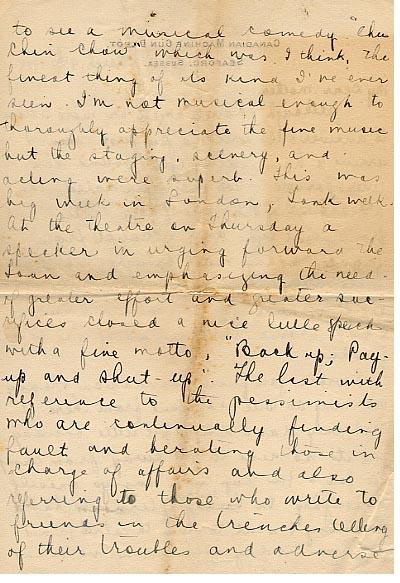 to see a musical comedy "Chu
Chin Chow" which was, I think, the
finest thing of its kind I've ever
seen. I'm not musical enough to
thoroughly appreciate the fine music
but the staging, scenery, and
acting were superb. This was
big week in London, Tank week.
At the theatre on Thursday a
speaker in urging forward the
Loan and emphasizing the need
of greater effort and greater sac-
rifices closed a nice little speech
with a fine motto, "Back up; Pay-
up and shut-up". The last with
reference to the pessimists
who are continually finding
fault and berating those in
charge of affairs and also
referring to those who write to
friends in the trenches telling
of their troubles and adverse
CANADIAN MACHINE GUN DEPOT
SEAFORD, SUSSEX